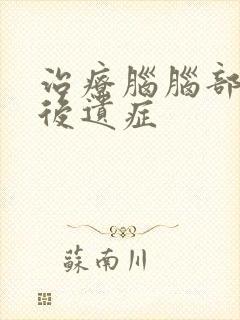 治療腦腦部
後遺症
蘇南川